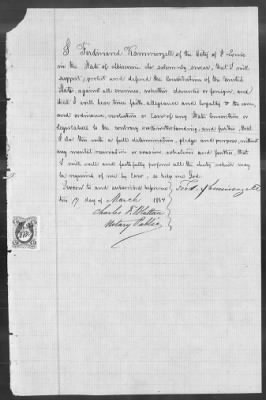 I Ferdinand Kamminzell of the City of St Louis
in the State of Missouri do solemnly swear, that I will
support, protect and defend the Constitution of the United
States, against all enemies, whether domestic or foreign, and
that I will bear true faith, allegiance and loyalty to the same,
any ordinance, resolution or law of any State Convention or
legislature to the contrary notwithstanding, and further, that
I do this with a full determination, pledge and purpose, without
any mental reservation or evasion whatsoever and further, that
I will well and faithfully perform all the duties which may
be required of me by law, so help me God.
Sworn to and subscribed before me Ferd.
this 17 day of March 1864
Charles
Notary Public